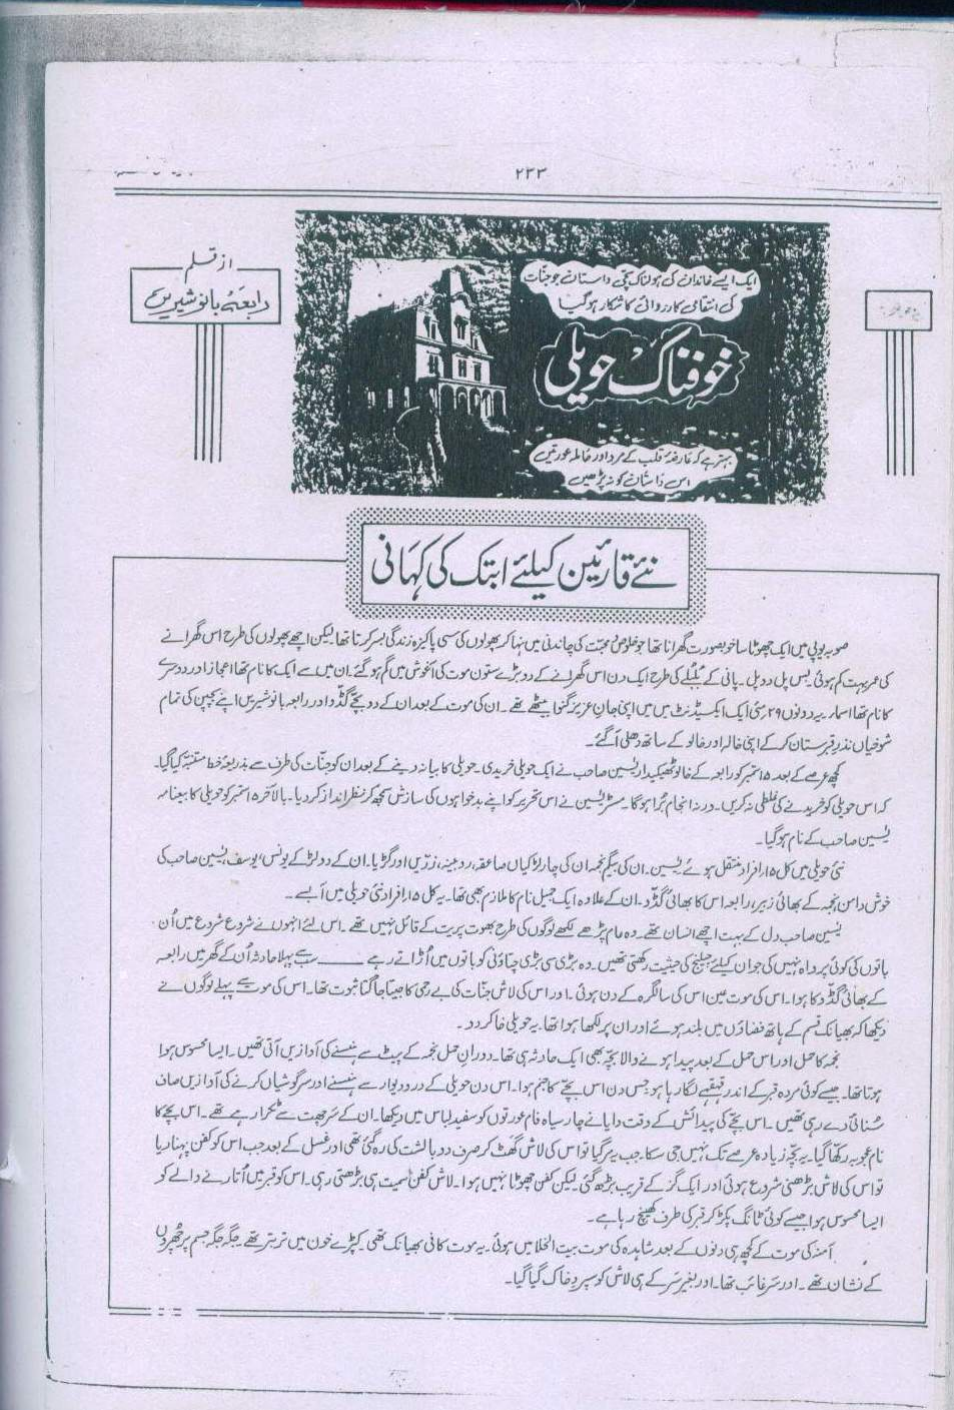 ۲۳۳
از قلم
رابعہ بانو شیریں
ایک ایسے خاندان کی ہولناک سچی داستان جو جنّات
کی انتقامی کارروائی کا شکار ہو گیا
خوفناک حویلی
بہتر ہے کہ عارضۂ قلب کے مرد اور حاملہ عورتیں
اس داستان کو نہ پڑھیں
نئے قارئین کیلئے ابتک کی کہانی
صوبہ یوپی میں ایک چھوٹا سا خوبصورت گھرانا تھا جو خلوص و محبت کی چاندنی میں نہا کر پھولوں کی سی پاکیزہ زندگی بسر کرتا تھا لیکن اچھے پھولوں کی طرح اس گھرانے
کی عمر بہت کم ہوئی۔ بس پل دو پل۔ پانی کے بُلبلے کی طرح ایک دن اس گھرانے کے دو بڑے ستون موت کی آغوش میں گم ہو گئے۔ ان میں سے ایک کا نام تھا اعجاز اور دوسرے
کا نام تھا اسماء۔ یہ دونوں ۲۹ مئی ایک ایکسیڈنٹ میں میں اپنی جان عزیز گنوا بیٹھے تھے۔ ان کی موت کے بعد ان کے دو بچے گڈو اور رابعہ بانو شیریں اپنے بچپن کی تمام
شوخیاں نذرِ قبرستان کر کے اپنی خالہ اور خالو کے ساتھ دھلی آ گئے۔
کچھ عرصے کے بعد ۱۵ ستمبر کو رابعہ کے خالو ٹھیکیدار یٰسین صاحب نے ایک حویلی خریدی۔ حویلی کا بیانہ دینے کے بعد ان کو جنّات کی طرف سے بذریعۂ خط متنبّہ کیا گیا۔
کہ اس حویلی کو خریدنے کی غلطی نہ کریں۔ ورنہ انجام بُرا ہو گا۔ مسٹر یٰسین نے اس تحریر کو اپنے بدخواہوں کی سازش سمجھ کر نظر انداز کر دیا۔ بالآخر ہ استمبر کو حویلی کا بیعنامہ
یٰسین صاحب کے نام ہو گیا۔
نئی حویلی میں کل ۱۵ افراد منتقل ہوئے یٰسین۔ ان کی بیگم نجمہ ان کی چار لڑکیاں صاعقہ، روبینہ، زرّیں اور گڑیا۔ ان کے دو لڑکے یونس، یوسف، یٰسین صاحب کی
خوش دامن نجمہ کے بھائی زبیر، رابعہ اس کا بھائی گڈّو۔ ان کے علاوہ ایک جمیل نام کا ملازم بھی تھا۔ یہ کل ۱۵ افراد نئی حویلی میں آ بسے۔
یٰسین صاحب دل کے بہت اچھے انسان تھے۔ وہ عام پڑھے لکھے لوگوں کی طرح بھوت پریت کے قائل نہیں تھے۔ اس لئے انہوں نے شروع شروع میں اُن
باتوں کی کوئی پرواہ نہیں کی جو ان کیلئے چیلنج کی حیثیت رکھتی تھیں۔ وہ بڑی سی بڑی چناؤنی کو باتوں میں اُڑاتے رہے ــــــ سب سے پہلا حادثہ اُن کے گھر میں رابعہ
کے بھائی گڈّو کا ہوا۔ اس کی موت عین اس کی سالگرہ کے دن ہوئی۔ اور اس کی لاش جنّات کی بے رحمی کا جیتا جاگتا ثبوت تھا۔ اس کی موت سے پہلے لوگوں نے
دیکھا کہ بھیانک قسم کے ہاتھ فضاؤں میں بلند ہوئے اور ان پر لکھا ہوا تھا۔ یہ حویلی خا کر دو۔
نجمہ کا حمل اور اس حمل کے بعد پیدا ہونے والا بچہ بھی ایک حادثہ ہی تھا۔ دورانِ حمل نجمہ کے پیٹ سے ہنسنے کی آوازیں آتی تھیں۔ ایسا محسوس ہوا
ہوتا تھا۔ جیسے کوئی مردہ قبر کے اندر قہقہے لگا رہا ہو جس دن اس بچّے کا جنم ہوا۔ اس دن حویلی کے در و دیوار سے ہنسنے اور سرگوشیاں کرنے کی آوازیں صاف
سُنائی دے رہی تھیں۔ اس بچّے کی پیدائش کے وقت دایا نے چار سیاہ فام عورتوں کو سفید لباس میں دیکھا۔ ان کے سر چھت سے ٹکرا رہے تھے۔ اس بچّے کا
نام عجوبہ رکھا گیا۔ یہ بچّہ زیادہ عرصے تک نہیں جی سکا۔ جب یہ مر گیا تو اس کی لاش گھٹ کر صرف دو بالشت کی رہ گئی تھی اور غسل کے بعد جب اس کو کفن پہنا دیا
تو اس کی لاش بڑھنی شروع ہوئی اور ایک گز کے قریب بڑھ گئی لیکن کفن چھوٹا نہیں ہوا۔ لاش کفن سمیت ہی بڑھتی رہی۔ اس کو قبر میں اُتارنے والے کو
ایسا محسوس ہوا جیسے کوئی ٹانگ پکڑ کر قبر کی طرف کھینچ رہا ہے۔
آمنہ کی موت کے کچھ ہی دنوں کے بعد شاہدہ کی موت بیت الخلا میں ہوئی۔ یہ موت کافی بھیانک تھی۔ کپڑے خون میں تر بتر تھے۔ جگہ جگہ جسم پر چُھریوں
کے نشان تھے۔ اور سَر غائب تھا۔ اور بغیر سَر کے ہی لاش کو سپردِ خاک گیا گیا۔